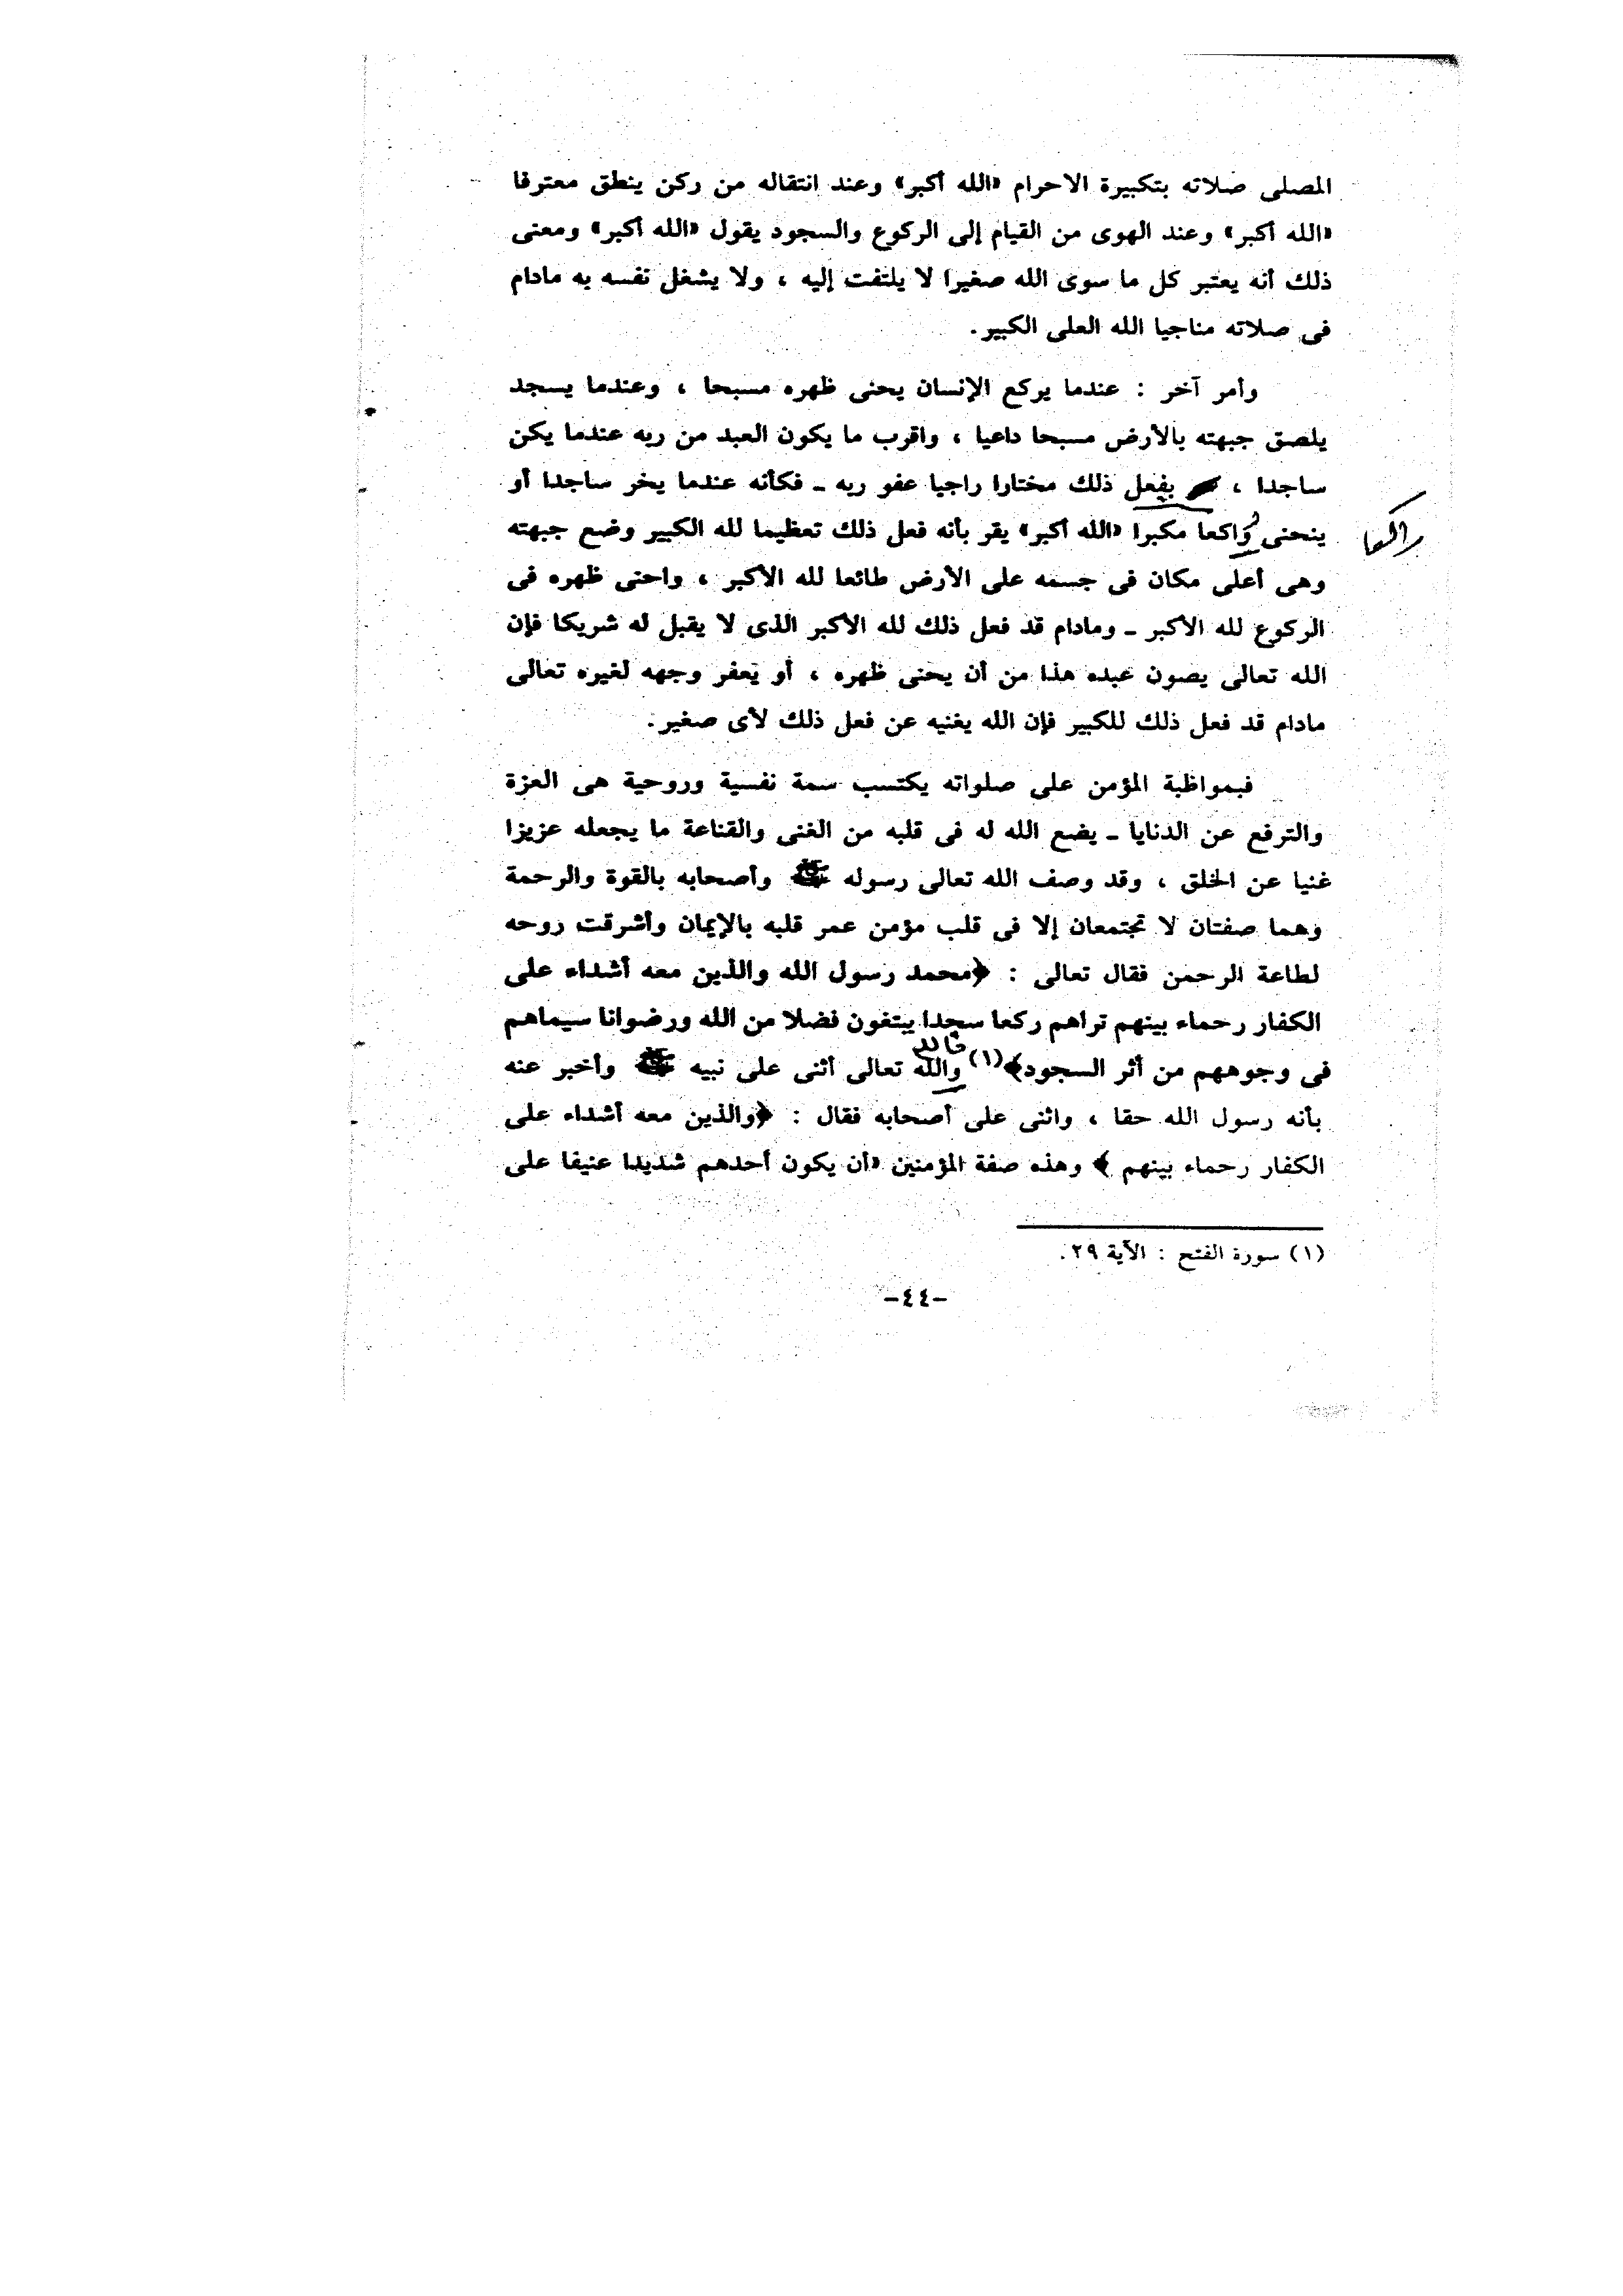 المصلى صلاته بتكبيرة الاحرام «الله أكبر» وعند انتقاله من ركن ينطق معترفا
«الله أكبر» وعند الهوى من القيام إلى الركوع والسجود يقول «الله أكبر» ومعنى
ذلك أنه يعتبر كل ما سوى الله صغيرا لا يلتفت إليه ، ولا يشغل نفسه به مادام
فى صلاته مناجيا الله العلى الكبير.
وأمر آخر : عندما يركع الإنسان يحنى ظهره مسبحا ، وعندما يسجد
يلصق جبهته بالأرض مسبحا داعيا ، واقرب ما يكون العبد من ربه عندما يكن
ساجدا ، يفعل ذلك مختارا راجيا عفو ربه ـ فكأنه عندما يخر ساجدا أو
ينحنى واكعا مكبرا «الله أكبر» يقر بأنه فعل ذلك تعظيما لله الكبير وضع جبهته
راكعا
وهى أعلى مكان فى جسمه على الأرض طائعا لله الأكبر ، واحنى ظهره فى
الركوع لله الأكبر ـ ومادام قد فعل ذلك لله الأكبر الذى لا يقبل له شريكا فإن
الله تعالى يصون عبده هذا من أن يحنى ظهره ، أو يعفر وجهه لغيره تعالى
مادام قد فعل ذلك للكبير فإن الله يغنيه عن فعل ذلك لأى صغير.
فبمواظبة المؤمن على صلواته يكتسب سمة نفسية وروحية هى العزة
والترفع عن الدنايا ـ يضع الله له فى قلبه من الغنى والقناعة ما يجعله عزيزا
غنيا عن الخلق ، وقد وصف الله تعالى رسوله ﷺ وأصحابه بالقوة والرحمة
وهما صفتان لا تجتمعان إلا فى قلب مؤمن عمر قلبه بالإيمان وأشرقت روحه
لطاعة الرحمن فقال تعالى : ﴿محمد رسول الله والذين معه أشداء على
الكفار رحماء بينهم تراهم ركعا سجدا يبتغون فضلا من الله ورضوانا سيماهم
فالله
فى وجوههم من أثر السجود﴾(١) والله تعالى أثنى على نبيه ﷺ وأخبر عنه
بأنه رسول الله حقا ، واثنى على أصحابه فقال : ﴿والذين معه أشداء على
الكفار رحماء بينهم ﴾ وهذه صفة المؤمنين «أن يكون أحدهم شديدا عنيفا على
(١) سورة الفتح : الآية ٢٩.
-٤٤-